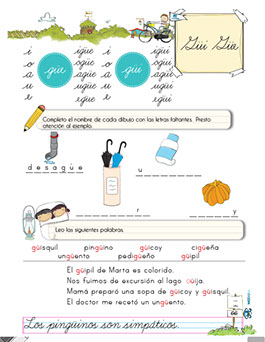 Güi Güe
i igüe i igüi
o ogüe o ogüi
a güe agüe a güi agüi
u ugüe u ugüi
e egüe e egüi
Completo el nombre de cada dibujo con las letras faltantes. Presto
atención al ejemplo.
d e s a g ü e
u
r y
Leo las siguientes palabras.
güisquil pingüino güicoy cigüeña
ungüento pedigüeño güipil
El güipil de Marta es colorido.
Nos fuimos de excursión al lago Güija.
Mamá preparó una sopa de güicoy y güisquil.
El doctor me recetó un ungüento.
Los pingüinos son simpáticos.